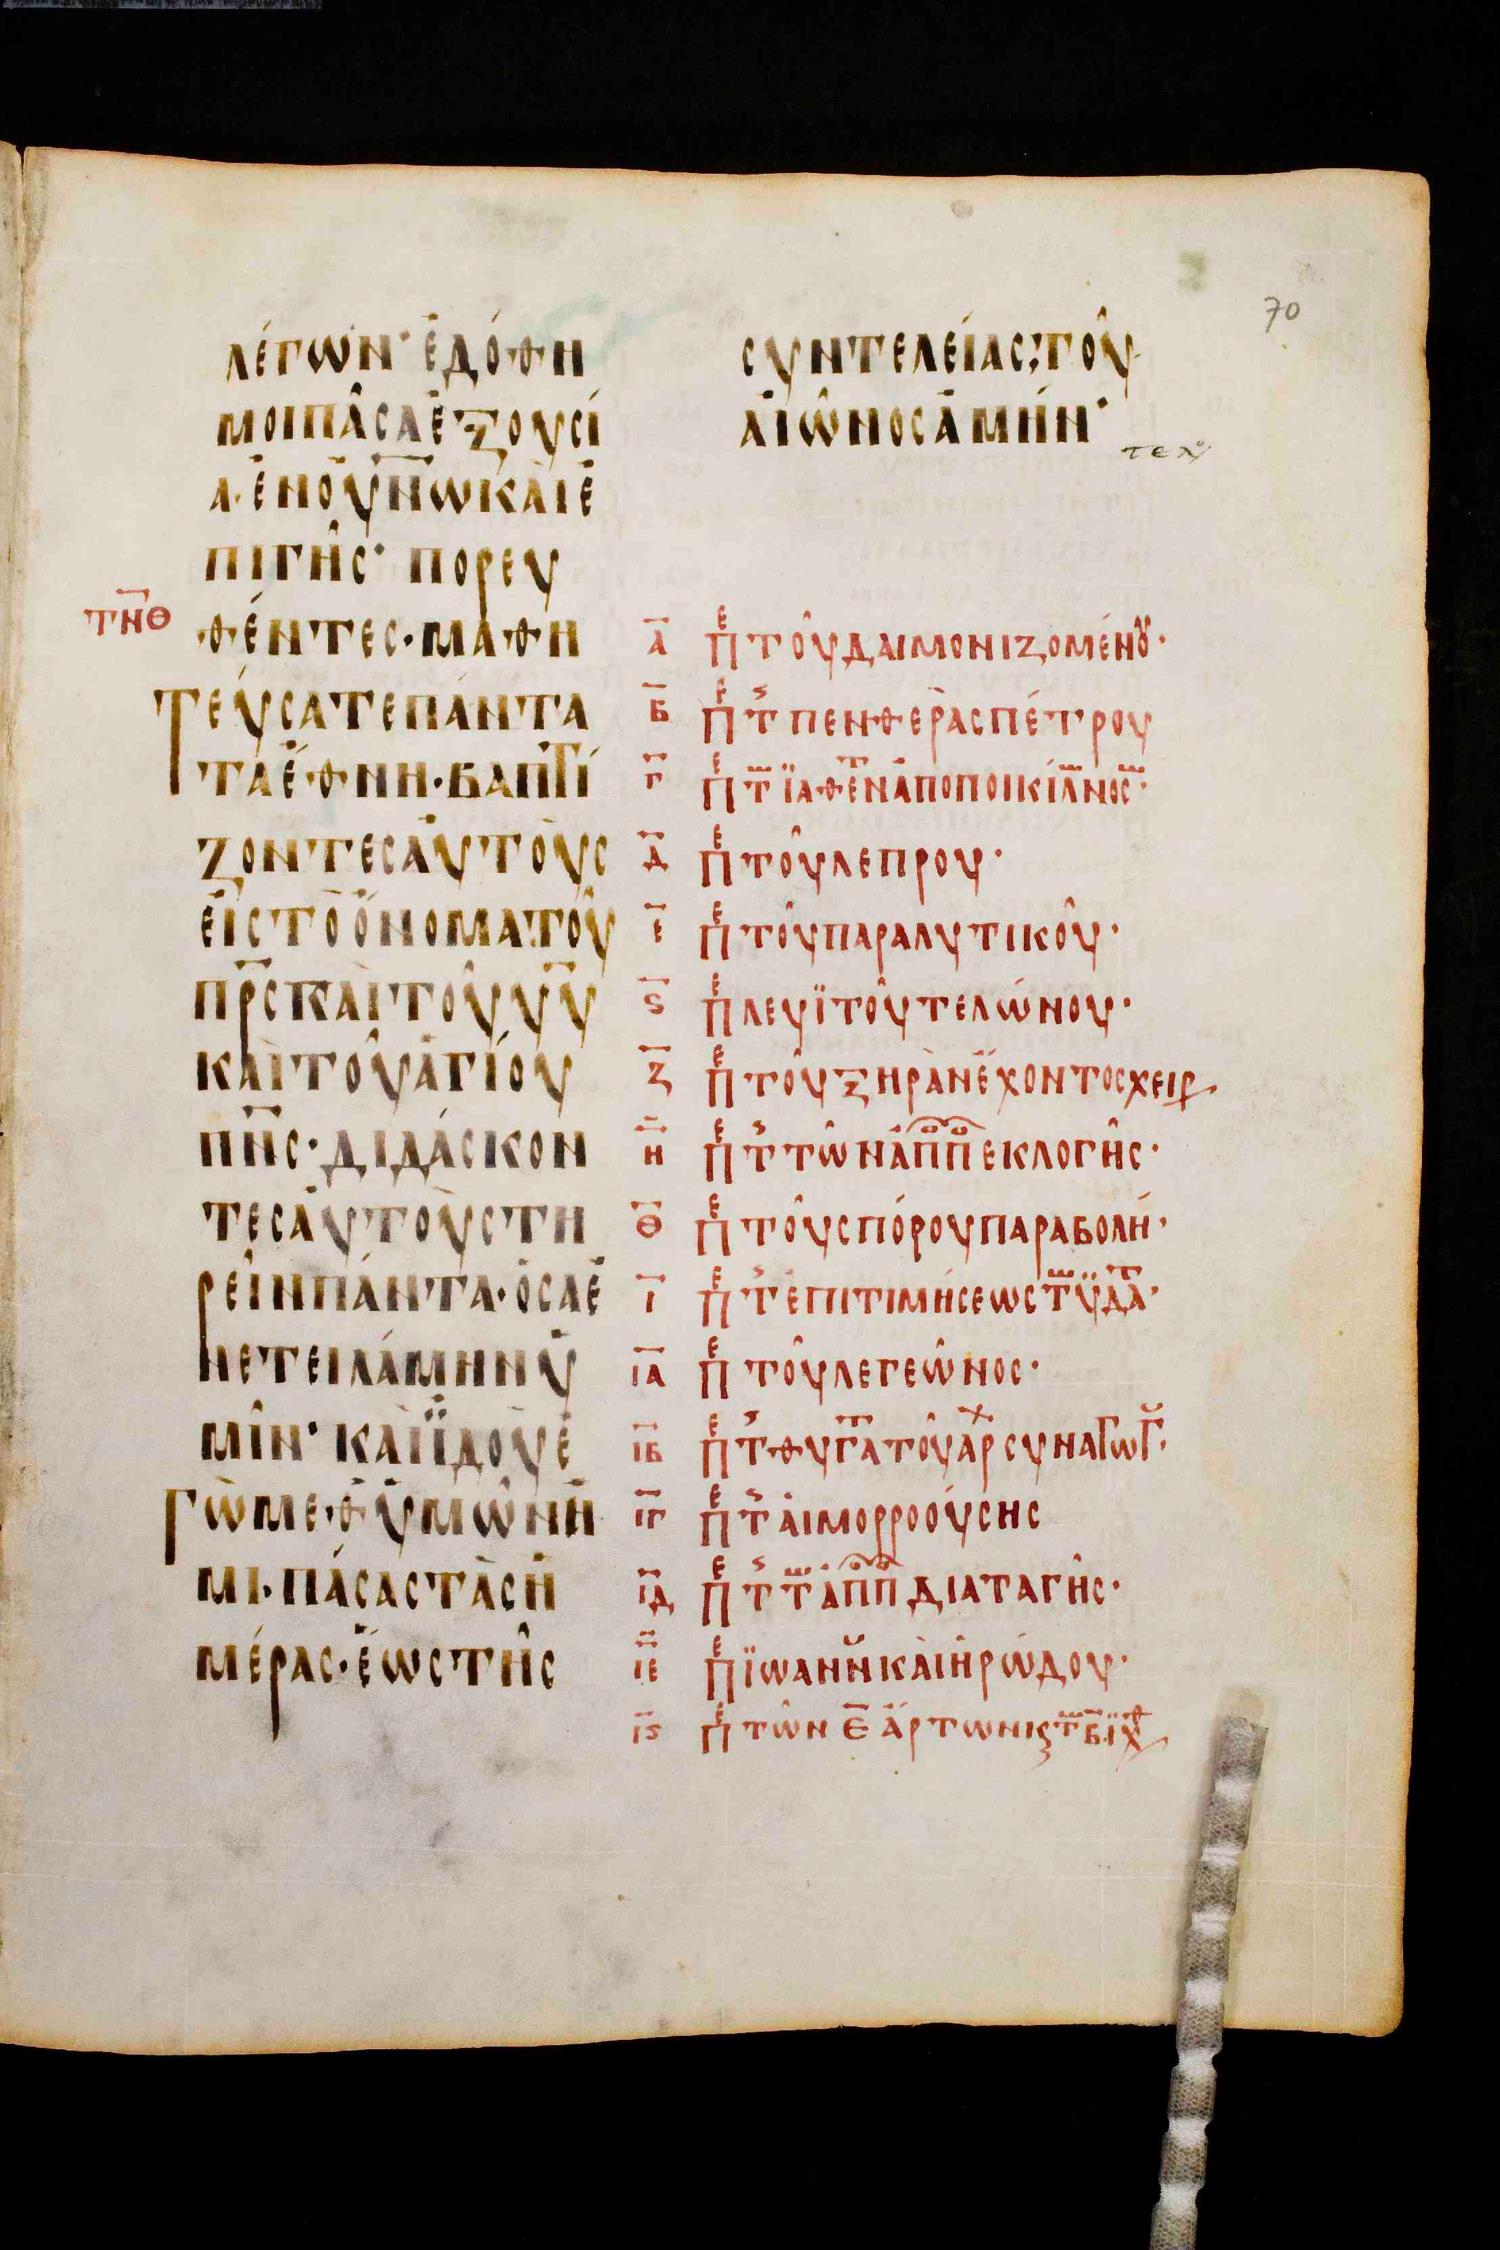 70
λέγων· ἐδόθη
μοι πᾶσα ἐξουσί
α· ἐν οὐν̅ω καὶ ἐ
πὶ γῆς· πορευ
τ̅η̅θ
θέντες· μαθη
τεύσατε πάντα
τὰ ἔθνη· βαπτί
ζοντες αὐτοὺς
εἰς τὸ ὄνομα τοῦ
π̅ρ̅ς καὶ τοῦ υ̅υ̅
καὶ τοῦ ἁγίου
π̅ν̅ς· διδάσκον
τες αὐτοὺς τη
ρεῖν πάντα· ὅσα ἐ
νετειλάμην ὑ
μῖν· καὶ ἰδοὺ ἐ
γὼ μεθ ὑμῶν εἰ
μι· πάσας τὰς ἡ
μέρας· ἕως τῆς
συντελείας· τοῦ
αἰῶνος ἀμήν·
τελ
α̅ πε τοῦ δαιμονιζομένου·
β̅ πε τ πενθερᾶς πέτρου
γ̅ πε τ ἰαθεντ ἀπὸ ποικίλ νοσ·
δ̅ πε τοῦ λεπρου·
ε̅ πε τοῦ παραλυτικοῦ·
ς̅ πε λευϊ τοῦ τελώνου·
ζ̅ πε τοῦ ξηρὰν ἔχοντος χειρ
η̅ πε τ τῶν ἀποπ εκλογῆς·
θ̅ πε τοῦ σπόρου παραβολή·
ι̅ πε τ ἐπιτιμήσεως τ ὑδατ·
ια̅ πε τοῦ λεγεῶνος·
ιβ̅ πε τ θυγατ τοῦ ἀρχ συναγωγ·
ιγ̅ πε τ αἱμορροούσης
ιδ̅ πε τ τ ἀποπ διαταγῆς·
ιε̅ πε ἰωάνν καὶ ἡρώδου·
ις̅ πε τῶν ε̅ ἄρτων κ τ β ἰχθ